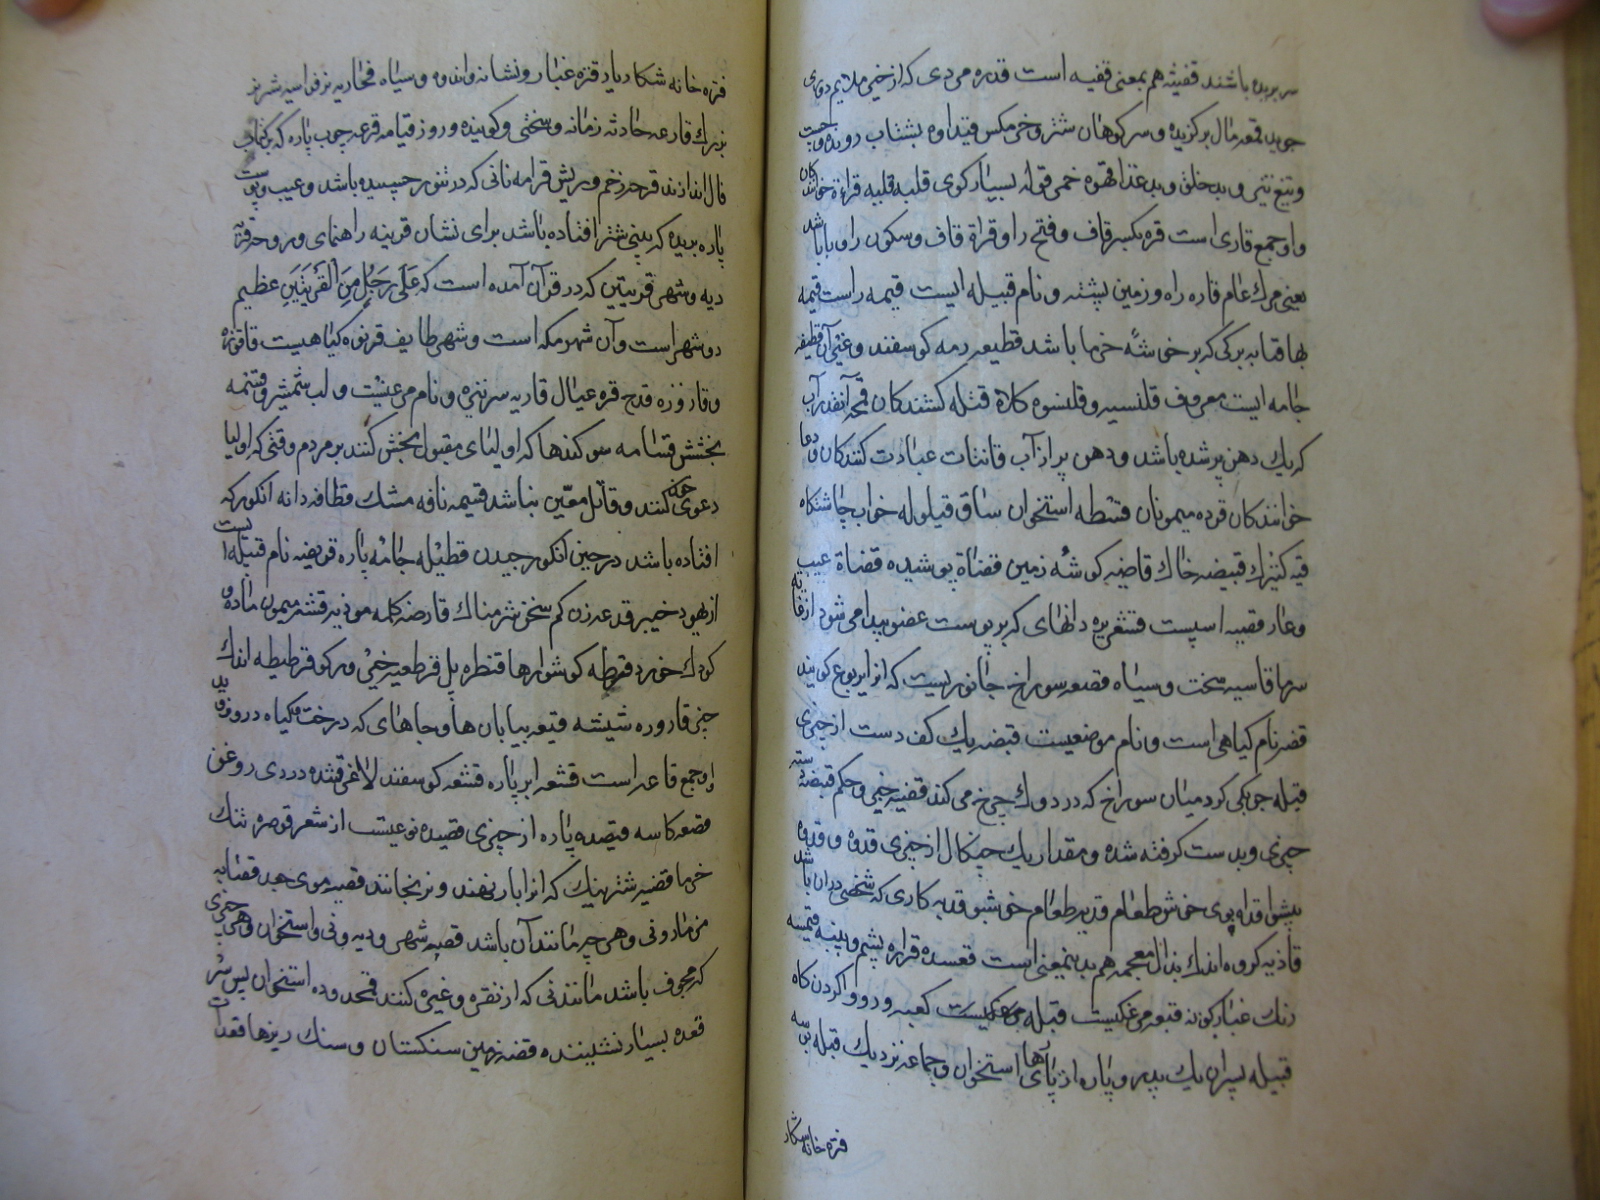 سر بریده باشند قفیئه هم بمعنی قفیه است قدره مردی که از خیر ملایم دوری
جوید قمعه مال برکزیده و سر کوهان شتر و خرمکس قیداوه بشتاب رونده و چست
و تیغ تیز و بدخلق و بدغذا قهوه خمر قوله بسیار کوی قلبه قلیبه قراءة خوانندکان
و او جمع قاری است قره بکسر قاف و فتح را و قراة قاف و سکون را و با باشد
یعنی مرک عام قاره راه و زمین پشته و نام قبیله ایست قیمه راست قیمه
بها قنابه برکی که بر خوشه خرما باشد قطیعه رمه کوسفند و غیر آن قطیفه
جامه ایست معروف قلنسیه و قلنسوه کلاه قتله کشندکان قمحه آنقدر آب
که یک دهن پر شده باشد و دهن پر از آب قانتات عبادت کنندکان و دعا
خوانندکان قرده میمونان قسطه استخوان ساق قیلوله خواب چاشتکاه
قیه کنیزک قبیضه خاک قاصیه کوشه زمین قضاة پوشیده قضاة عیب
و عار قضیه اسپست قشعریره دانهای که بر پوست عضو پیدا می شود از غایه
سرما قاسیه سخت و سیاه قصعه سوراخ جانوریست که انرا یربوع کویند
قضه نام کیاهی است و نام موضعیست قبضه یک کف دست از چیزی
قبله چوبکی کرد میان سوراخ که در دوک چرخ می کند قضیه خبر و حکم قبضه دسته
چیزی و بدست کرفته شده و مقدار یک چنکال از چیزی قدوه و قدوه
پیشوا قداه بوی خوش طعام قدیه طعام خوشبو قدیه کاری که شخصی در آن باشد
قاذیه کروه اندک بذال معجمه هم بدینمعنی است قعسده قراره پشم و پینه قتمسه
رنک غبارکونه قبعه مرغکیست قبله مرغکیست کعبه و رو وا کردن کاه
قبیله پسران یک پدر و پاره از پارهای استخوان و جماعه نزدیک قبله بوسه
قتره خانه شکار
قتره خانه شکار یاد قتره غبار و نشانه و اندوه و سیاه قحاریه نر قراسیه شتر نر
بزرک قارعه حادثه زمانه و سختی و کوبنده و روز قیامه قرعه چوب پاره که بر کتاب
فال اندازند قرحه زخم و ریش قرامه نانی که در تنور چسپیده باشد و عیب و پوست
پاره بریده که بینی شتر افتاده باشد برای نشان قرینه راهنمای و روح قریة
دیه و شهر قریتین که در قرآن آمده است که عَلَی رَجُلٍ مِنَ الْقَرْیَتَیْنِ عظیم
دو شهر است و آن شهر مکه است و شهر طایف قرنوه کیاهیست قاقوزه
و قازوزه قدح قره عیال قاریه سر نیزه و نام مرغیست و لب شمشیر قسمه
بخشش قسامه سوکندها که اولیای مقبول بخش کنند بر مردم وقتی که اولیا
دعوی خون کنند و قاتل معین نباشد قسیمه نافه مشک قطافه دانه انکور که
افتاده باشد در حین انکور چیدن قطیله جامه پاره قریضه نام قبیله ایست
از یهود خیبر قدعه زن کم سخن شرمناک قارصه کلمه موذیه قشه میمون ماده و
کودک خورد قرطه کوشوارها قنطره پل قرطعبه خیر و رکو قرطیطه اندک
چیز قاروره شیشه قیعه بیابان ها و جاهای که درخت و کیاه در و نروید
او جمع قاعه است قشعه ابر پاره قشعه کوسفند لاغر قشده دردی روغن
قصعه کاسه قصیده پاره از چیزی قصیده نوعیست از شعر قوصره تنک
خرما قضیه شتر نهنک که انرا بار نهند و نرنجانند قصیه موی جعد قصابه
مزمار و نی و هر چه مانند آن باشد قصبه شهر و دیه و نی و استخوان و هر چیزی
که مجوف باشد مانند نی که از نقره و غیره کنند قمحدوه استخوان پس سر
قعده بسیار نشیننده قضه زمین سنکستان و سنک ریزها قعدات